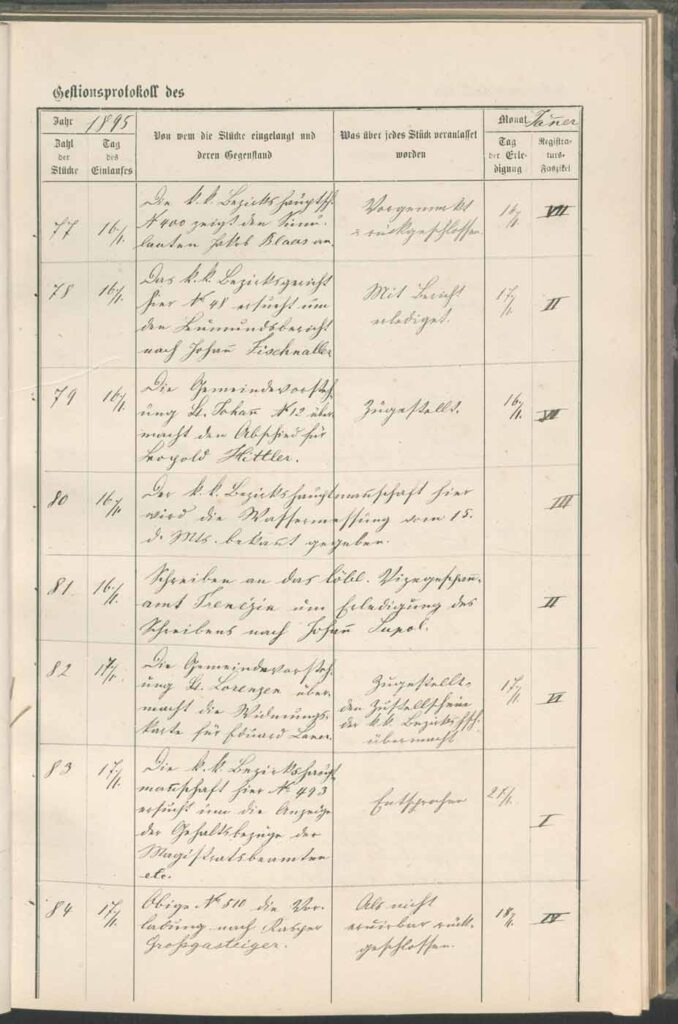 Gestionsprotokoll des
Jahr 1895
Monat Jäner
Zahl der Stücke
Tag des Einlaufes
Von wem die Stücke eingelangt und deren Gegenstand
Was über jedes Stück veranlasst worden
Tag der Erledigung
Registraturs-Faszikel
77 16/1.
Die k. k. Bezirkshauptsch.
N 400 zeigt den Simu-
lanten Jakob Blaas an.
Vorgemerkt
rückgeschlossen
16/1 VII
78 16/1.
Das k. k. Bezirksgericht
hier N° 48 ersucht um
den Leumundsbericht
nach Johann Fischnaller
Mit Bericht
erlediget.
17/1 II
79 16/1.
Die Gemeindevorsteh-
ung St. Johann N 12 über-
macht den Abschied für
Leopold Hittler.
Zugestellt.
16/1. VII
80 16/1.
Der k. k. Bezirkshauptmannschaft hier
wird die Wassermessung vom 15.
d. Mts. bekannt gegeben.
III
81. 16/1.
Schreiben an das löbl.
um Erledigung des
Schreibens nach Johann
II
82 17/1.
Die Gemeindevorsteh-
ung St. Lorenzen über-
macht die Widmungs-
karte für Eduard
Zugestellt
den Zustellschein
der k. k. Bezirkshsch.
übermacht
17/1. VI
83 17/1.
Die k. k. Bezirkshaupt-
mannschaft hier N° 493
ersucht um die Anzeige
der Gehaltsbezüge der
Magistratsbeamten
etc.
Entsprochen
21/1. I
84 17/1.
Obige N° 510 die Vor-
ladung nach Kasper
Großgasteiger.
Als nicht
eruirbar rück-
geschlossen.
18/1. IV